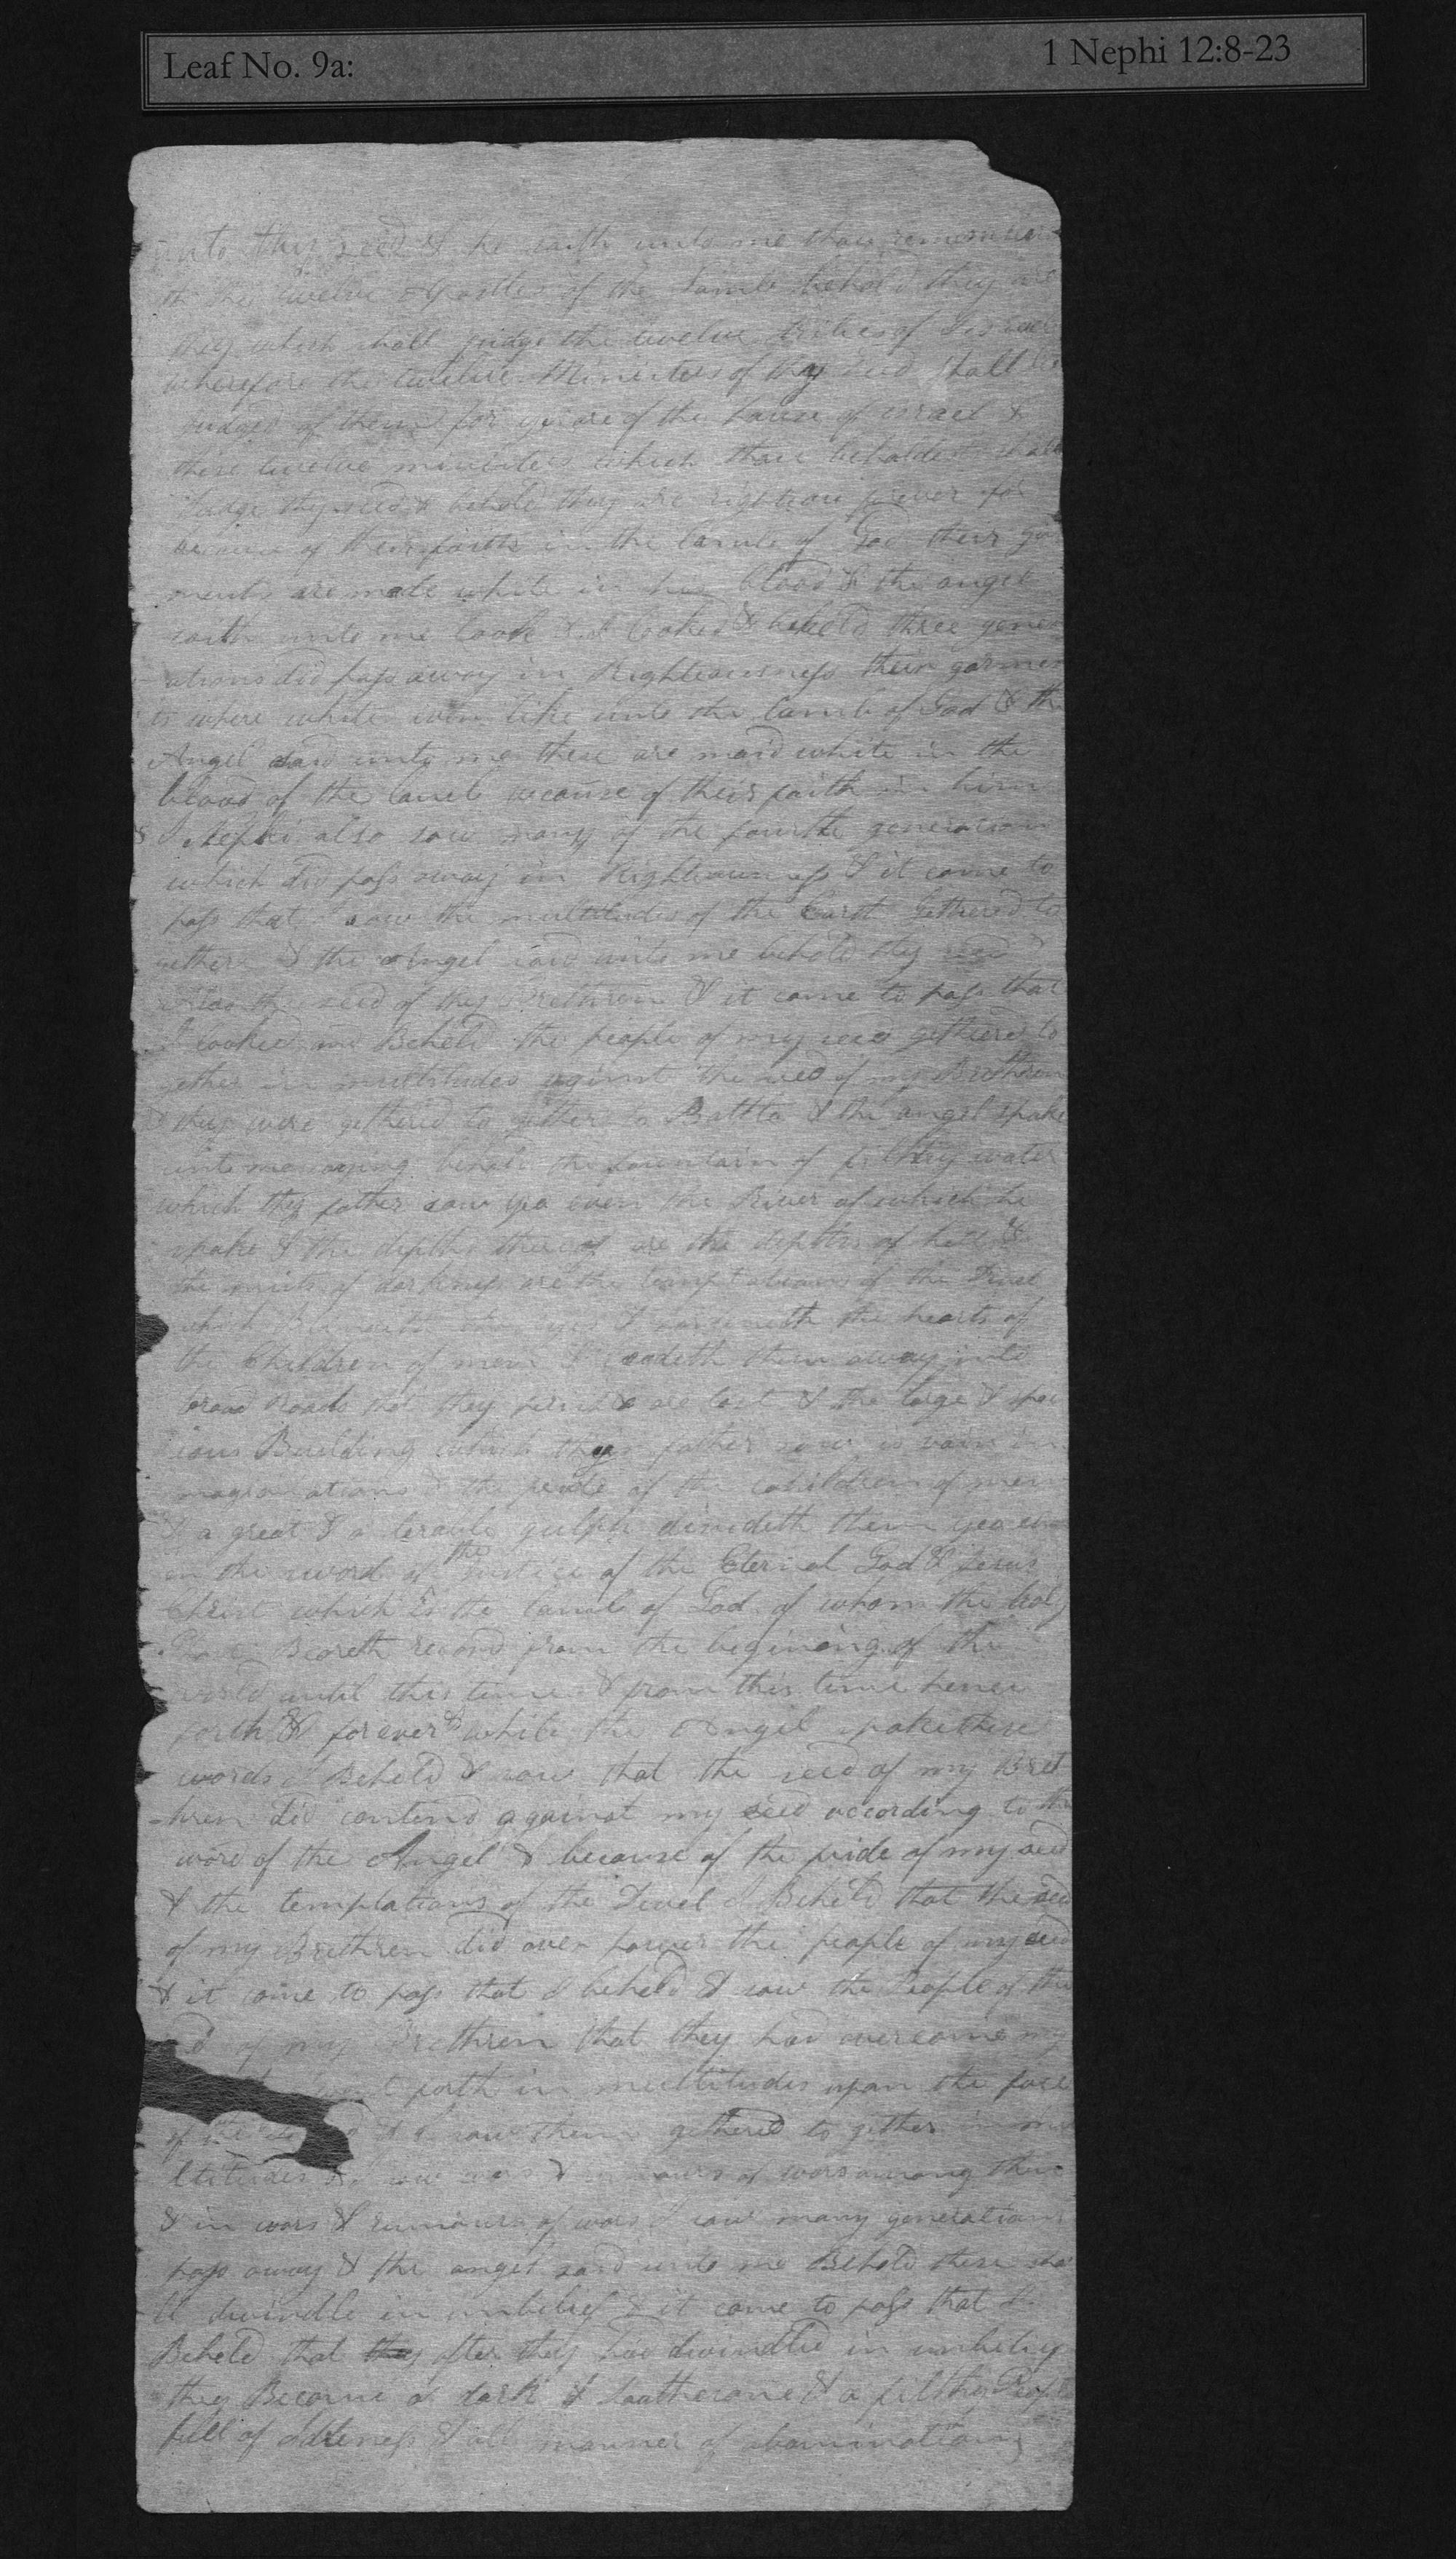 Leaf No. 9a: 1 Nephi 12:8-23
unto thy seed & he saith unto me thou remember
th the twelve Apostles of the Lamb behold they are
they which shall judge the twelve tribes of Israel
wherefore the twelve Ministers of thy seed shall be
judged of them for ye are of the house of israel &
these twelve ministers which thou beholdest shall
Judge thy seed & behold they are righteous forever for
because of their faith in the lamb of God their gar
ments are made white in his blood & the angel
saith unto me look & I looked & beheld three gener
ations did pass away in Righteousness their garmen
ts where white even like unto the lamb of God & the
Angel said unto me these are maid white in the
blood of the lamb because of their faith in him
& I Nephi also saw many of the fourth generation
which did pass away in Righteousness & it came to
pass that I saw the multitudes of the Earth gethered to
gether & the Angel said unto me behold thy seed
Also the seed of thy Brethren & it came to pass that
I looked and Beheld the people of my seed gethered to
gether in multitudes aginst the seed of my Brethren
& they were gethered to gether to Battle & the angel spake
unto me saying behold the fountain of filthy water
which thy father saw yea even the River of which he
spake & the depths thereof are the depths of hell &
the mists of darkness are the temptations of the Devel
which the & hardeneth the hearts of
the Children of men & leadeth them away into
broad roads that they perish & are lost & the large & spac
ious Building which thy father saw is vain im
maginations & the pride of the children of men
& a great & a terable gulph divideth them yea even
the word of the justice of the Eternal God & Jesus
Christ which is the lamb of God of whom the holy
Beareth record from the begining of the
world until this time & from this time hence
forth & forever & while the Angel spake these
words I Beheld & saw that the seed of my Bret
hren did contend against my seed according to the
word of the Angel & because of the pride of my seed
& the temptations of the Devel I Beheld that the seed
of my Brethren did over power the people of my seed
& it came to pass that I beheld & saw the People of the
seed of my Brethren that they had overcame my
forth in multitudes upon the face
of the & I saw them gethered to gether in mu
ltitudes & I saw wars & rumours of wars among them
& in wars & rumours of wars I saw many generations
pass away & the angel said unto me Behold these sha
ll dwindle in unbelief & it came to pass that I
Beheld that they after they had dwindled in unbelief
they Became a dark & loathsome & a filthy People
full of idleness & all manner of abominations